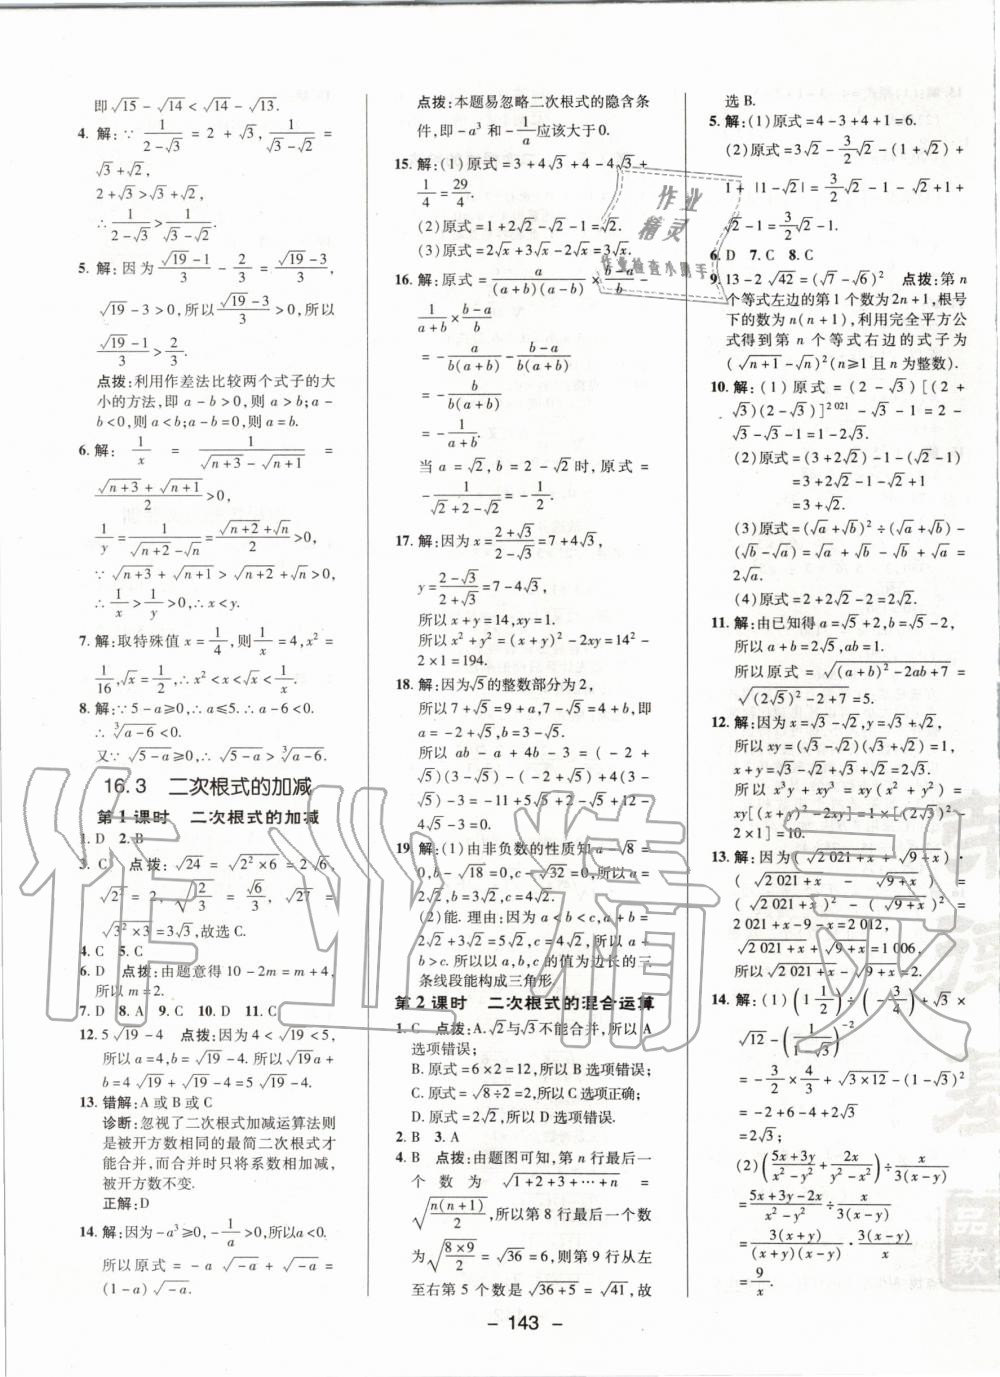 即√15-√14<√14-√13.
4. 解:∵1/(2-√3)=2+√3,1/(√3-√2)=
√3+√2,
2+√3>√3+√2,
∴1/(2-√3)>1/(√3-√2).
5. 解:因为(√19-1)/3-2/3=(√19-3)/3,
√19-3>0,所以(√19-3)/3>0,所以
(√19-1)/3>2/3.
点拨:利用作差法比较两个式子的大
小的方法,即a-b>0,则a>b;a-
b<0,则a<b;a-b=0,则a=b.
6. 解:1/x=1/(√(n+3)-√(n+1))=
(√(n+3)+√(n+1))/2>0,
1/y=1/(√(n+2)-√n)=(√(n+2)+√n)/2>0,
∵√(n+3)+√(n+1)>√(n+2)+√n>0,
∴1/x>1/y>0,∴x<y.
7. 解:取特殊值x=1/4,则1/x=4,x²=
1/16,√x=1/2,∴x²<x<√x<1/x.
8. 解:∵5-a≥0,∴a≤5.∴a-6<0.
∴∛(a-6)<0.
又∵√(5-a)≥0,∴√(5-a)>∛(a-6).
16.3 二次根式的加减
第1课时 二次根式的加减
1. D 2. B
3. C 点拨:√24=√(2²×6)=2√6,
√2²=2,√(3/2)=√6/2,√27=
√(3²×3)=3√3,故选C.
4. C 5. C
6. D 点拨:由题意得10-2m=m+4,
所以m=2.
7. D 8. A 9. C 10. D 11. C
12. 5√19-4 点拨:∵4<√19<5,
所以a=4,b=√19-4.所以√19a+
b=4√19+√19-4=5√19-4.
13. 错解:A或B或C
诊断:忽视了二次根式加减运算法则
是被开方数相同的最简二次根式才
能合并,而合并时只将系数相加减,
被开方数不变.
正解:D
14. 解:因为-a³≥0,-1/a>0,所以a<0.
所以原式=-a√-a+√-a=
(1-a)√-a.
点拨:本题易忽略二次根式的隐含条
件,即-a³和-1/a应该大于0.
15. 解:(1)原式=3+4√3+4-4√3+
1/4=29/4.
(2)原式=1+2√2-√2-1=√2.
(3)原式=2√x+3√x-2√x=3√x.
16. 解:原式=a/((a+b)(a-b))×(b-a)/b-
1/(a+b)×(b-a)/b
=-a/(b(a+b))-(b-a)/(b(a+b))
=-b/(b(a+b))
=-1/(a+b).
当a=√2,b=2-√2时,原式=
-1/(√2+2-√2)=-1/2.
17. 解:因为x=(2+√3)/(2-√3)=7+4√3,
y=(2-√3)/(2+√3)=7-4√3,
所以x+y=14,xy=1.
所以x²+y²=(x+y)²-2xy=14²-
2×1=194.
18. 解:因为√5的整数部分为2,
所以7+√5=9+a,7-√5=4+b,即
a=-2+√5,b=3-√5.
所以ab-a+4b-3=(-2+√5)(3-
√5)-(-2+√5)+4(3-√5)-3=
-11+5√5+2-√5+12-
4√5-3=0.
19. 解:(1)由非负数的性质知a-√8=
0,b-√18=0,c-√32=0,所以a=
2√2,b=3√2,c=4√2.
(2)能. 理由:因为a<b<c,a+b=
2√2+3√2=5√2,c=4√2,所以a+
b>c.所以以a,b,c的值为边长的三
条线段能构成三角形.
第2课时 二次根式的混合运算
1. C 点拨:A.√2与√3不能合并,所以A
选项错误;
B. 原式=6×2=12,所以B选项错误;
C. 原式=√(8÷2)=2,所以C选项正确;
D. 原式=2√2,所以D选项错误.
2. B 3. A
4. B 点拨:由题图可知,第n行最后一
个数为√(1+2+3+…+n)=
√(n(n+1)/2),所以第8行最后一个数
为√(8×9/2)=√36=6,则第9行从左
至右第5个数是√(36+5)=√41,故
选B.
5. 解:(1)原式=4-3+4+1=6.
(2)原式=3√2-3/2√2-(1+√2)+
1+|1-√2|=3/2√2-1-√2+1+
√2-1=3/2√2-1.
6. D 7. C 8. C
9. 13-2√42=(√7-√6)² 点拨:第n
个等式左边的第1个数为2n+1,根号
下的数为n(n+1),利用完全平方公
式得到第n个等式右边的式子为
(√(n+1)-√n)²(n≥1且n为整数).
10. 解:(1)原式=(2-√3)[(2+
√3)(2-√3)]²⁰²¹-√3-1=2-
√3-√3-1=1-2√3.
(2)原式=(3+2√2)(√2-1)-(√2-1)
=3+√2-1-√2+1
=3+√2.
(3)原式=(√a+√b)²÷(√a+√b)-
(√b-√a)=√a+√b-√b+√a=
2√a.
(4)原式=2+2√2-2=2√2.
11. 解:由已知得a=√5+2,b=√5-2,
所以a+b=2√5,ab=1.
所以原式=√((a+b)²-2ab+7)=
√((2√5)²-2+7)=5.
12. 解:因为x=√3-√2,y=√3+√2,
所以xy=(√3-√2)(√3+√2)=1,
x+y=√3-√2+√3+√2=2√3.
所以x³y+xy³=xy(x²+y²)=
xy[(x+y)²-2xy]=1×[(2√3)²-
2×1]=10.
13. 解:因为(√(2 021+x)+√(9-x))·
(√(2 021+x)-√(9-x))=
(√(2 021+x))²-(√(9-x))²=
2 021+x-9+x=2 012,
√(2 021+x)+√(9-x)=1 006,
所以√(2 021+x)-√(9-x)=2.
14. 解:(1)(1 1/2)÷(-3/4)+√3×
√12-(1/(√3-1))⁻²
=-3/2×4/3+√(3×12)-(√3-1)²
=-2+6-4+2√3
=2√3;
(2)((5x+3y)/(x²-y²)+2x/(y²-x²))÷x/(3(x-y))
=(5x+3y-2x)/(x²-y²)÷x/(3(x-y))
=3(x+y)/((x+y)(x-y))·3(x-y)/x
=9/x.
- 143 -
作业
精灵
作业检查小助手
作业精灵
品
教